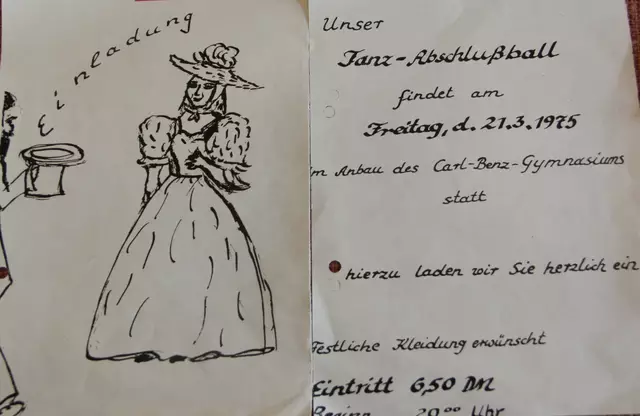 Einladung
Unser
Tanz-Abschlußball
findet am
Freitag, d. 21.3.1975
im Anbau des Carl-Benz-Gymnasiums
statt
hierzu laden wir Sie herzlich ein
Festliche Kleidung erwünscht
Eintritt 6,50 DM
Beginn 20⁰⁰ Uhr